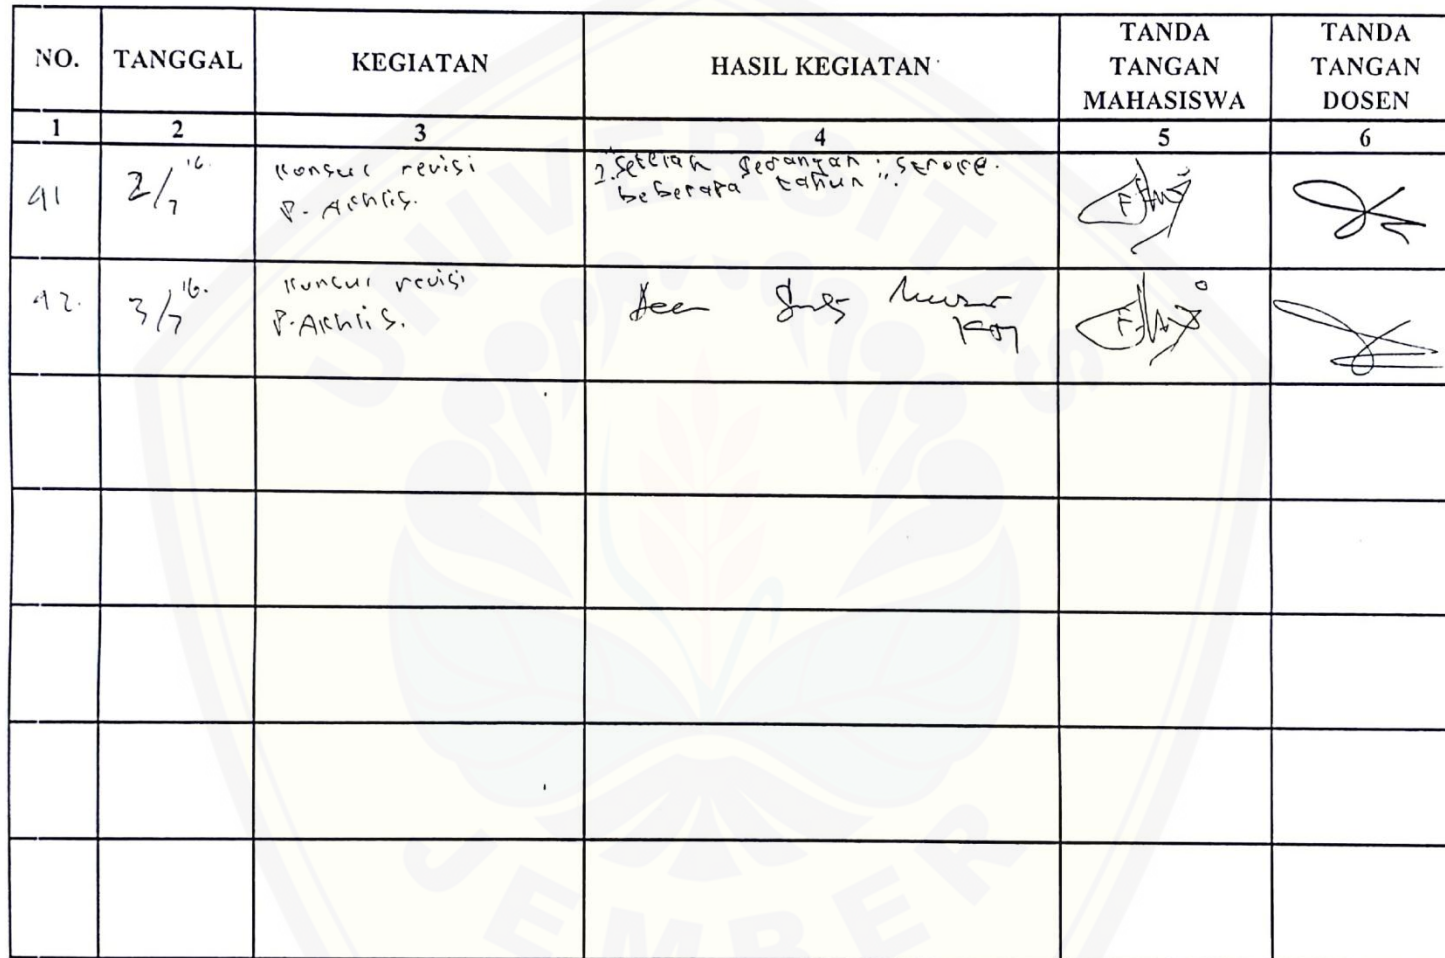 NO.
TANGGAL
KEGIATAN
HASIL KEGIATAN
TANDA
TANGAN
MAHASISWA
TANDA
TANGAN
DOSEN
1
2
3
4
5
6
41
2/7 '16.
Konsul revisi
P. Akhlis.
2. "Setelah serangan : stroke.
beberapa tahun".
42.
3/7 '16.
Konsul revisi
P. Akhlis.
Acc
UNIVERSITAS
JEMBER